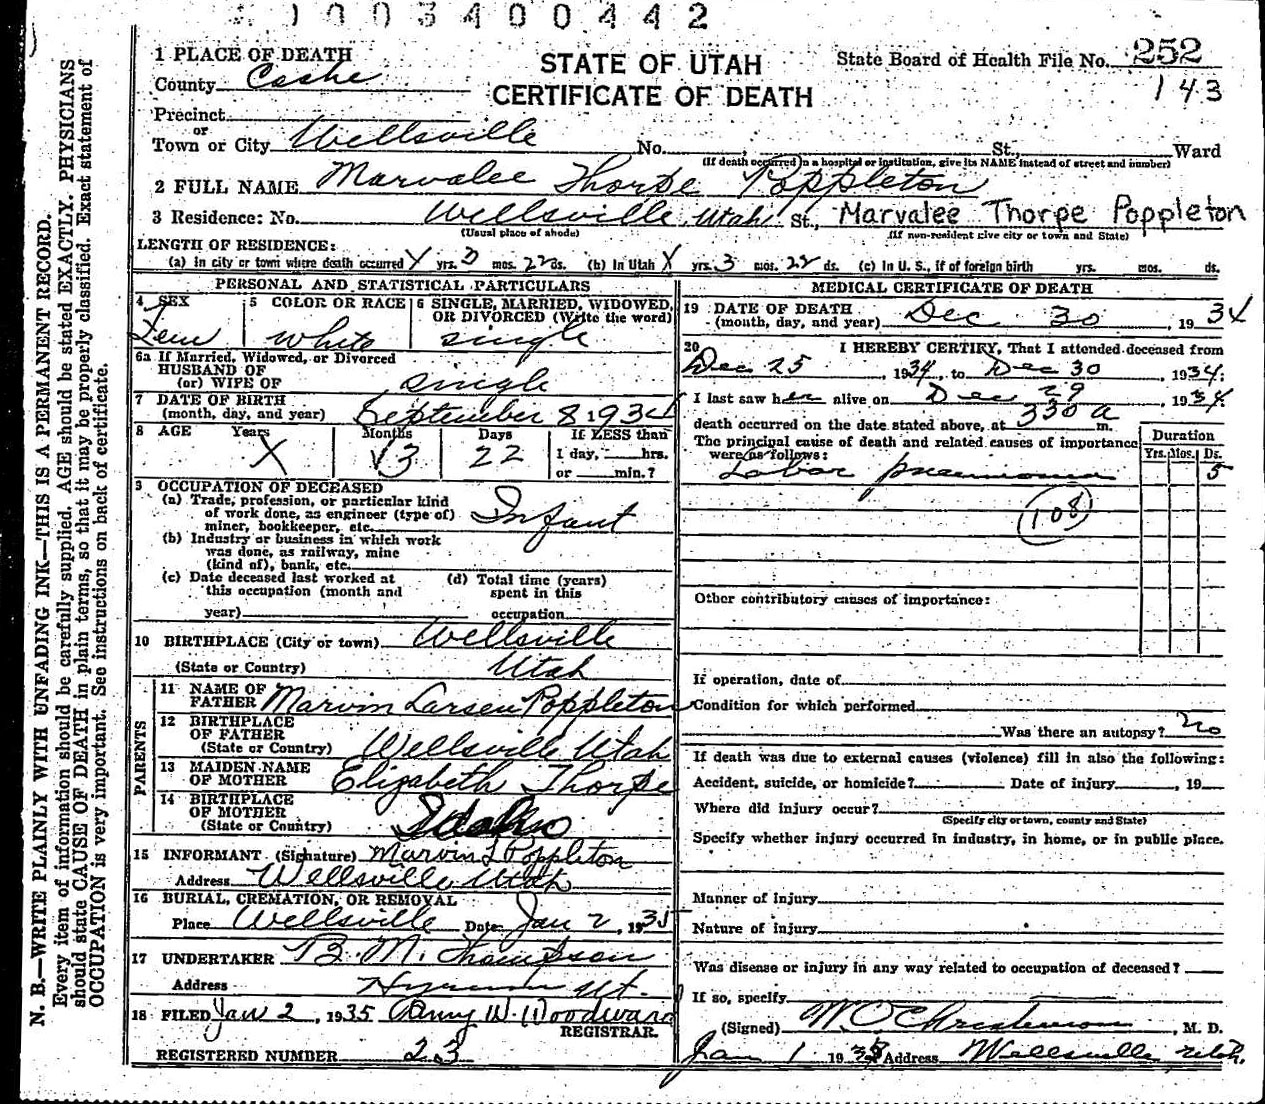 1003400442
1 PLACE OF DEATH
STATE OF UTAH
State Board of Health File No. 252
County Cache
CERTIFICATE OF DEATH
143
Precinct
or
Town or City Wellsville No. , St., Ward
(If death occurred in a hospital or institution, give its NAME instead of street and number)
2 FULL NAME Marvalee Thorpe Poppleton
3 Residence: No. Wellsville, Utah St., Marvalee Thorpe Poppleton
(Usual place of abode) (If non-resident give city or town and State)
LENGTH OF RESIDENCE:
(a) In city or town where death occurred X yrs. 3 mos. 22 ds. (b) In Utah X yrs. 3 mos. 22 ds. (c) In U. S., if of foreign birth yrs. mos. ds.
PERSONAL AND STATISTICAL PARTICULARS
4 SEX
Fem
5 COLOR OR RACE
white
6 SINGLE, MARRIED, WIDOWED, OR DIVORCED (Write the word)
single
6a If Married, Widowed, or Divorced
HUSBAND OF
(or) WIFE OF single
7 DATE OF BIRTH
(month, day, and year) September 8 1934
8 AGE Years Months Days If LESS than
X 3 22 1 day, hrs.
or min.?
9 OCCUPATION OF DECEASED
(a) Trade, profession, or particular kind
of work done, as engineer (type of)
miner, bookkeeper, etc. Infant
(b) Industry or business in which work
was done, as railway, mine
(kind of), bank, etc.
(c) Date deceased last worked at
this occupation (month and
year)
(d) Total time (years)
spent in this
occupation
10 BIRTHPLACE (City or town) Wellsville
(State or Country) Utah
PARENTS
11 NAME OF
FATHER Marvin Larsen Poppleton
12 BIRTHPLACE
OF FATHER
(State or Country) Wellsville Utah
13 MAIDEN NAME
OF MOTHER Elizabeth Thorpe
14 BIRTHPLACE
OF MOTHER
(State or Country) Idaho
15 INFORMANT (Signature) Marvin L Poppleton
Address Wellsville Utah
16 BURIAL, CREMATION, OR REMOVAL
Place Wellsville Date Jan 2, 1935
17 UNDERTAKER B. M. Thompson
Address Hyrum Ut.
18 FILED Jan 2, 1935 W. Woodward
REGISTRAR.
REGISTERED NUMBER 23
MEDICAL CERTIFICATE OF DEATH
19 DATE OF DEATH
(month, day, and year) Dec 30, 1934
20 I HEREBY CERTIFY, That I attended deceased from
Dec 25, 1934, to Dec 30, 1934.
I last saw her alive on Dec 29, 1934.
death occurred on the date stated above, at 330 a m.
The principal cause of death and related causes of importance
were as follows:
Duration
Yrs. Mos. Ds.
Lobar pneumonia 5
108
Other contributory causes of importance:
If operation, date of
Condition for which performed
Was there an autopsy? no
If death was due to external causes (violence) fill in also the following:
Accident, suicide, or homicide? Date of injury , 19
Where did injury occur?
(Specify city or town, county and State)
Specify whether injury occurred in industry, in home, or in public place.
Manner of injury
Nature of injury
Was disease or injury in any way related to occupation of deceased?
If so, specify
(Signed) W. O. Christenson, M. D.
Jan 1 1935 Address Wellsville, Utah.
N. B.—WRITE PLAINLY WITH UNFADING INK—THIS IS A PERMANENT RECORD.
Every item of information should be carefully supplied. AGE should be stated EXACTLY. PHYSICIANS
should state CAUSE OF DEATH in plain terms, so that it may be properly classified. Exact statement of
OCCUPATION is very important. See instructions on back of certificate.